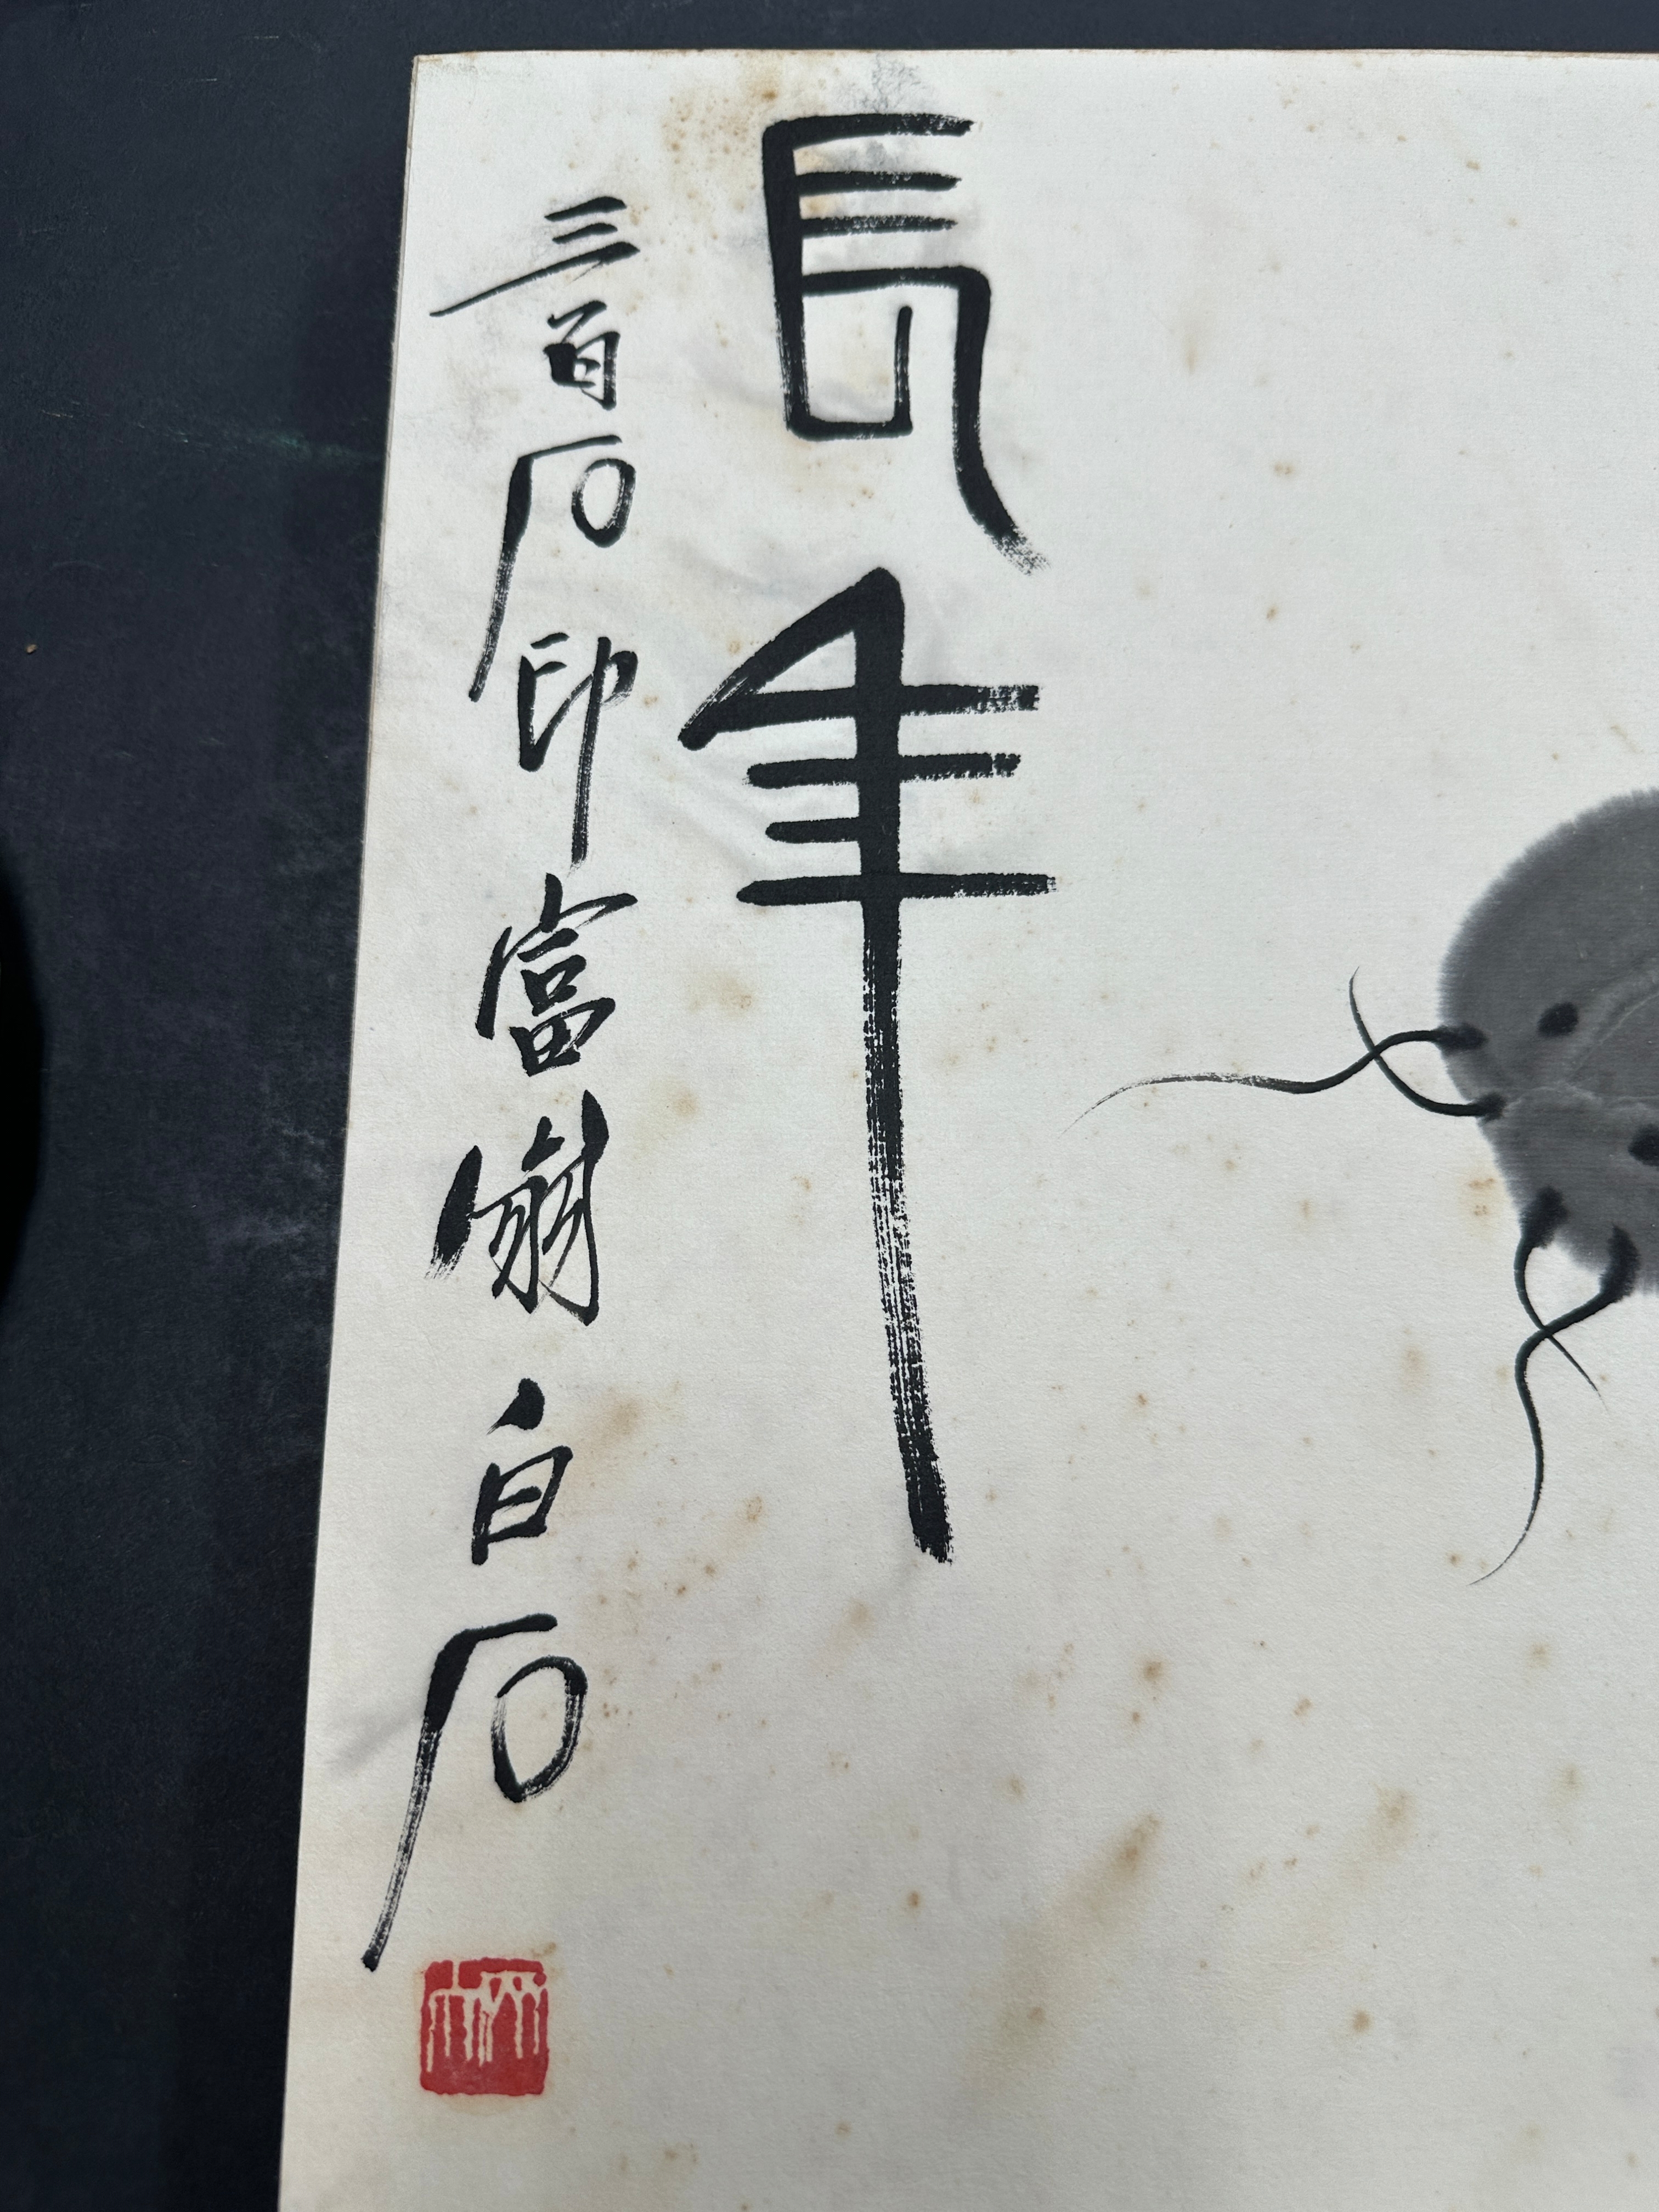 長年
三百石印富翁白石